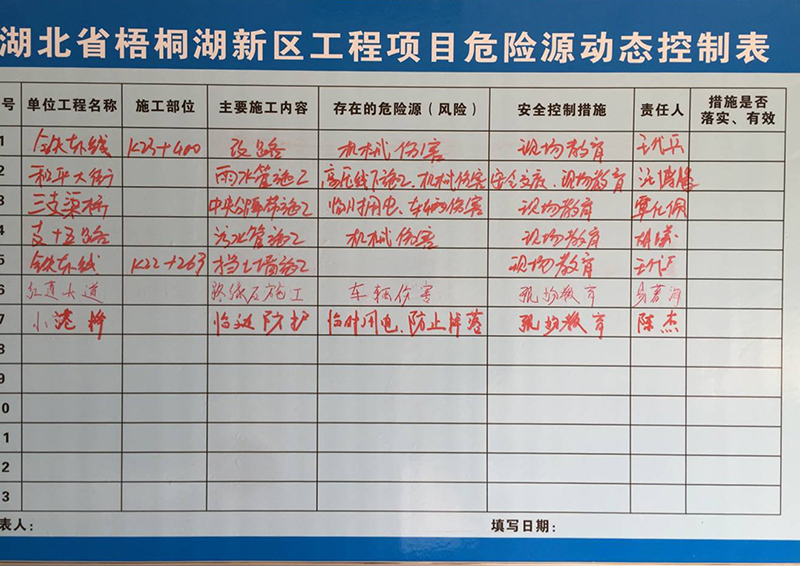 湖北省梧桐湖新区工程项目危险源动态控制表
号 单位工程名称 施工部位 主要施工内容 存在的危险源（风险） 安全控制措施 责任人 措施是否落实、有效
1 铁东线 K23+400 改路 机械伤害 现场教育
2 和平大街 雨水管施工 高压线下施工、机械伤害 安全交底、现场教育
3 三支渠桥 中央分隔带施工 临时用电、车辆伤害 现场教育
4 支十五路 污水管施工 机械伤害 现场教育
5 铁东线 K22+263 挡土墙施工 现场教育
6 红莲大道 路缘石施工 车辆伤害 现场教育
7 小港桥 临边防护 临时用电、防止掉落 现场教育 陈杰
8
9
0
1
2
3
表人： 填写日期：